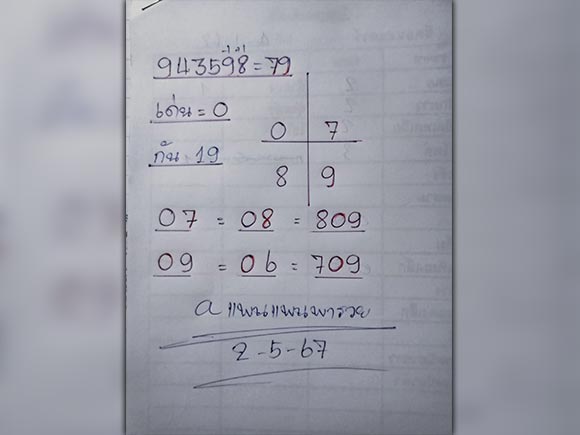 -1 01
943598=79
เด่น = 0
กัน 19
0 7
8 9
07 = 08 = 809
09 = 06 = 709
a แพนแพนพารวย
2-5-67